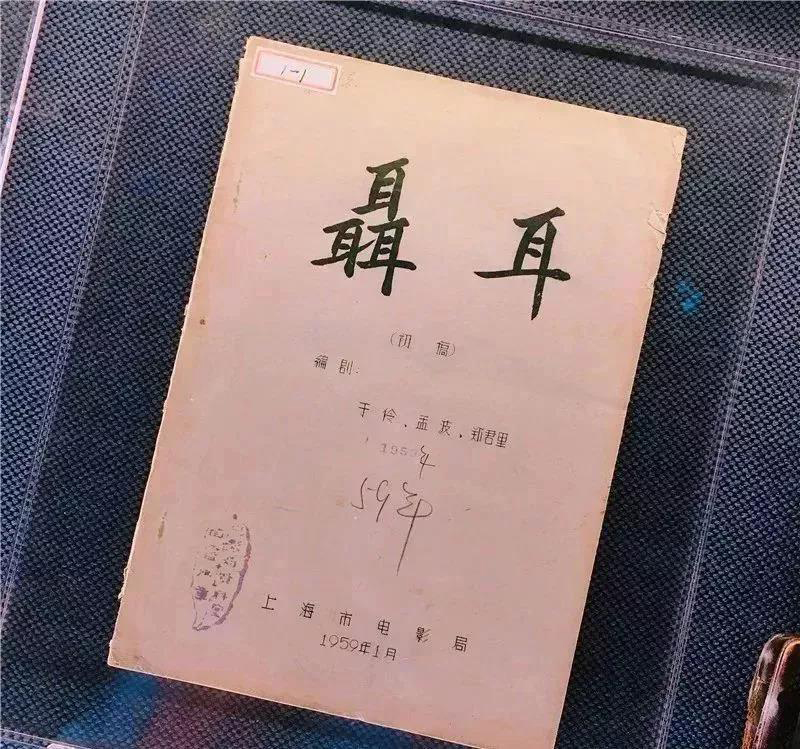 1-1
聶耳
(初稿)
編劇:
于伶、孟波、郑君里
1959年
59年
上海市电影局
1959年1月